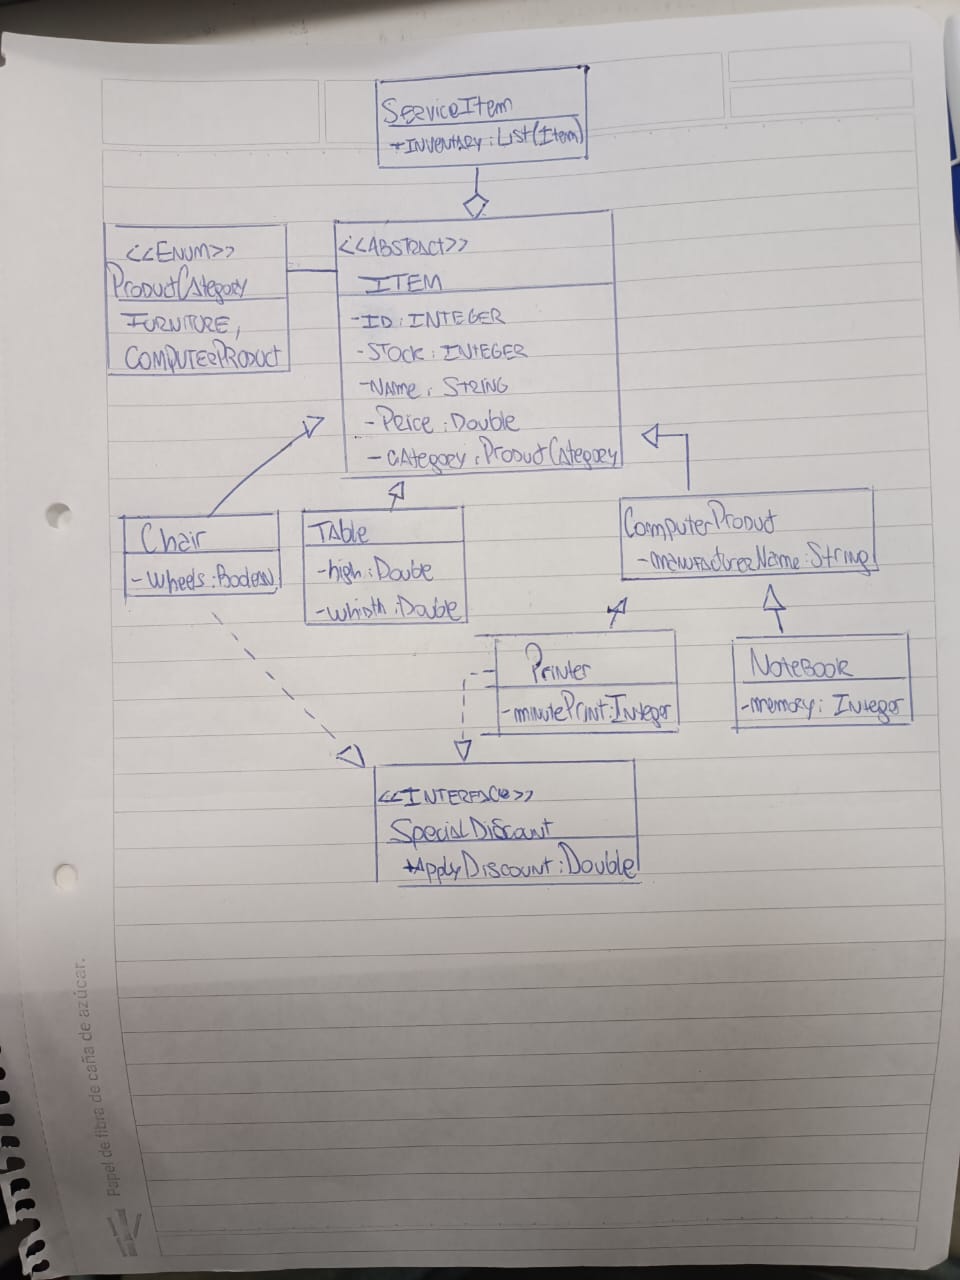 ServiceItem
+INVENTARY: List(Item)
<<ENUM>>
ProductCategory
FURNITURE,
COMPUTERPRODUCT
<<ABSTRACT>>
ITEM
-ID: INTEGER
-STOCK: INTEGER
-NAME: STRING
-Price: Double
-CAtegory: ProductCategory
Chair
-Wheels: Boolean
TAble
-high: Double
-whidth: Double
ComputerProduct
-manufacturerName: String
Printer
-minutePrint: Integer
NoteBook
-memory: Integer
<<INTERFACE>>
SpecialDiscount
+ApplyDiscount: Double
Papel de fibra de caña de azúcar.